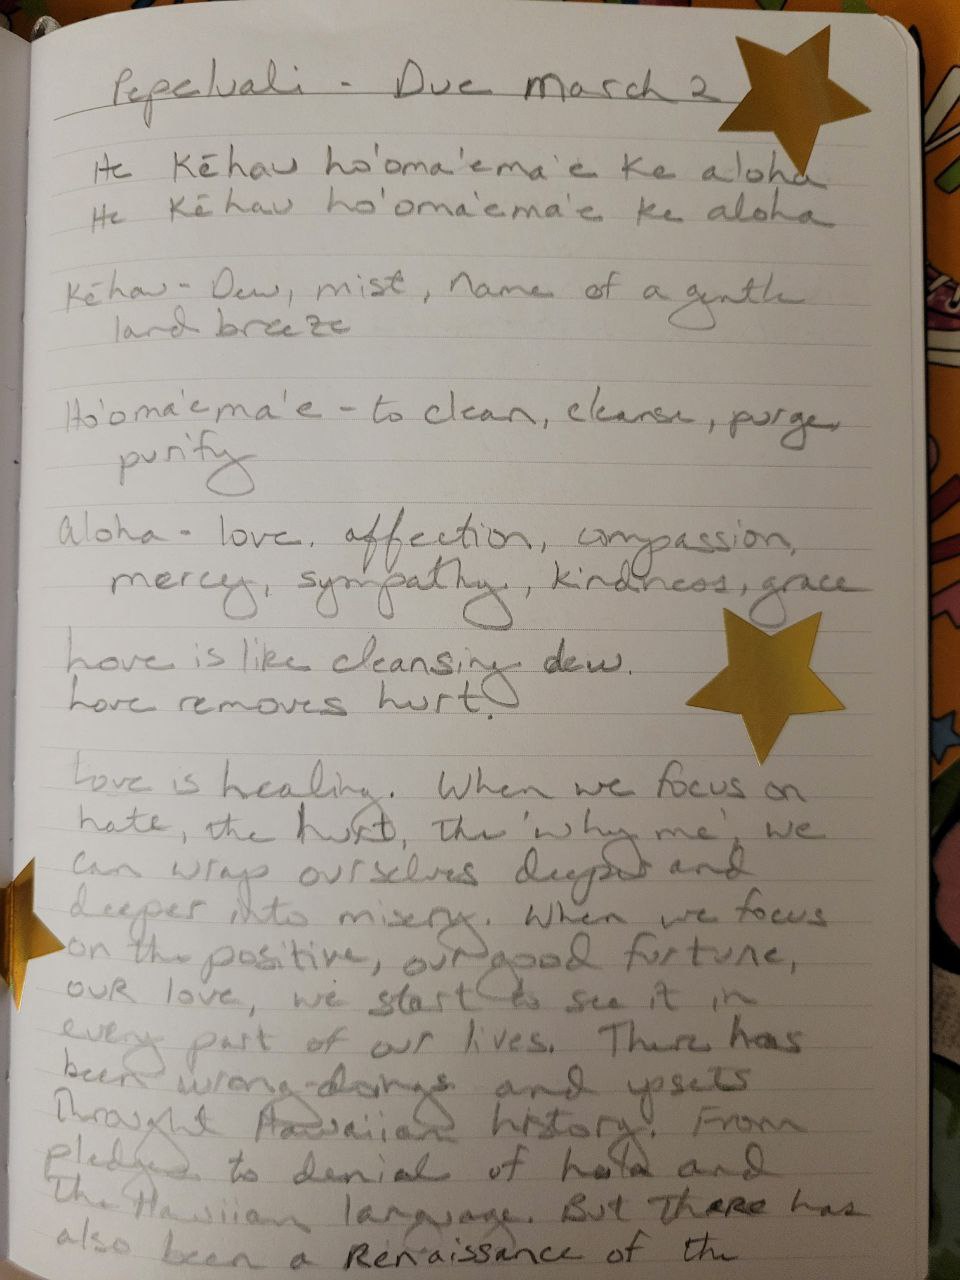 Pepeluali - Due March 2
He Kēhau ho'oma'ema'e ke aloha
He Kēhau ho'oma'ema'e ke aloha
Kēhau - Dew, mist, name of a gentle
land breeze
Ho'oma'ema'e - to clean, cleanse, purge,
purify
Aloha - love, affection, compassion,
mercy, sympathy, kindness, grace
Love is like cleansing dew.
Love removes hurt.
Love is healing. When we focus on
hate, the hurt, the 'why me', we
can wrap ourselves deeper and
deeper into misery. When we focus
on the positive, our good fortune,
our love, we start to see it in
every part of our lives. There has
been wrong-doings and upsets
Throught Hawaiian history. From
pledges to denial of hula and
The Hawiian language. But There has
also been a Renaissance of the